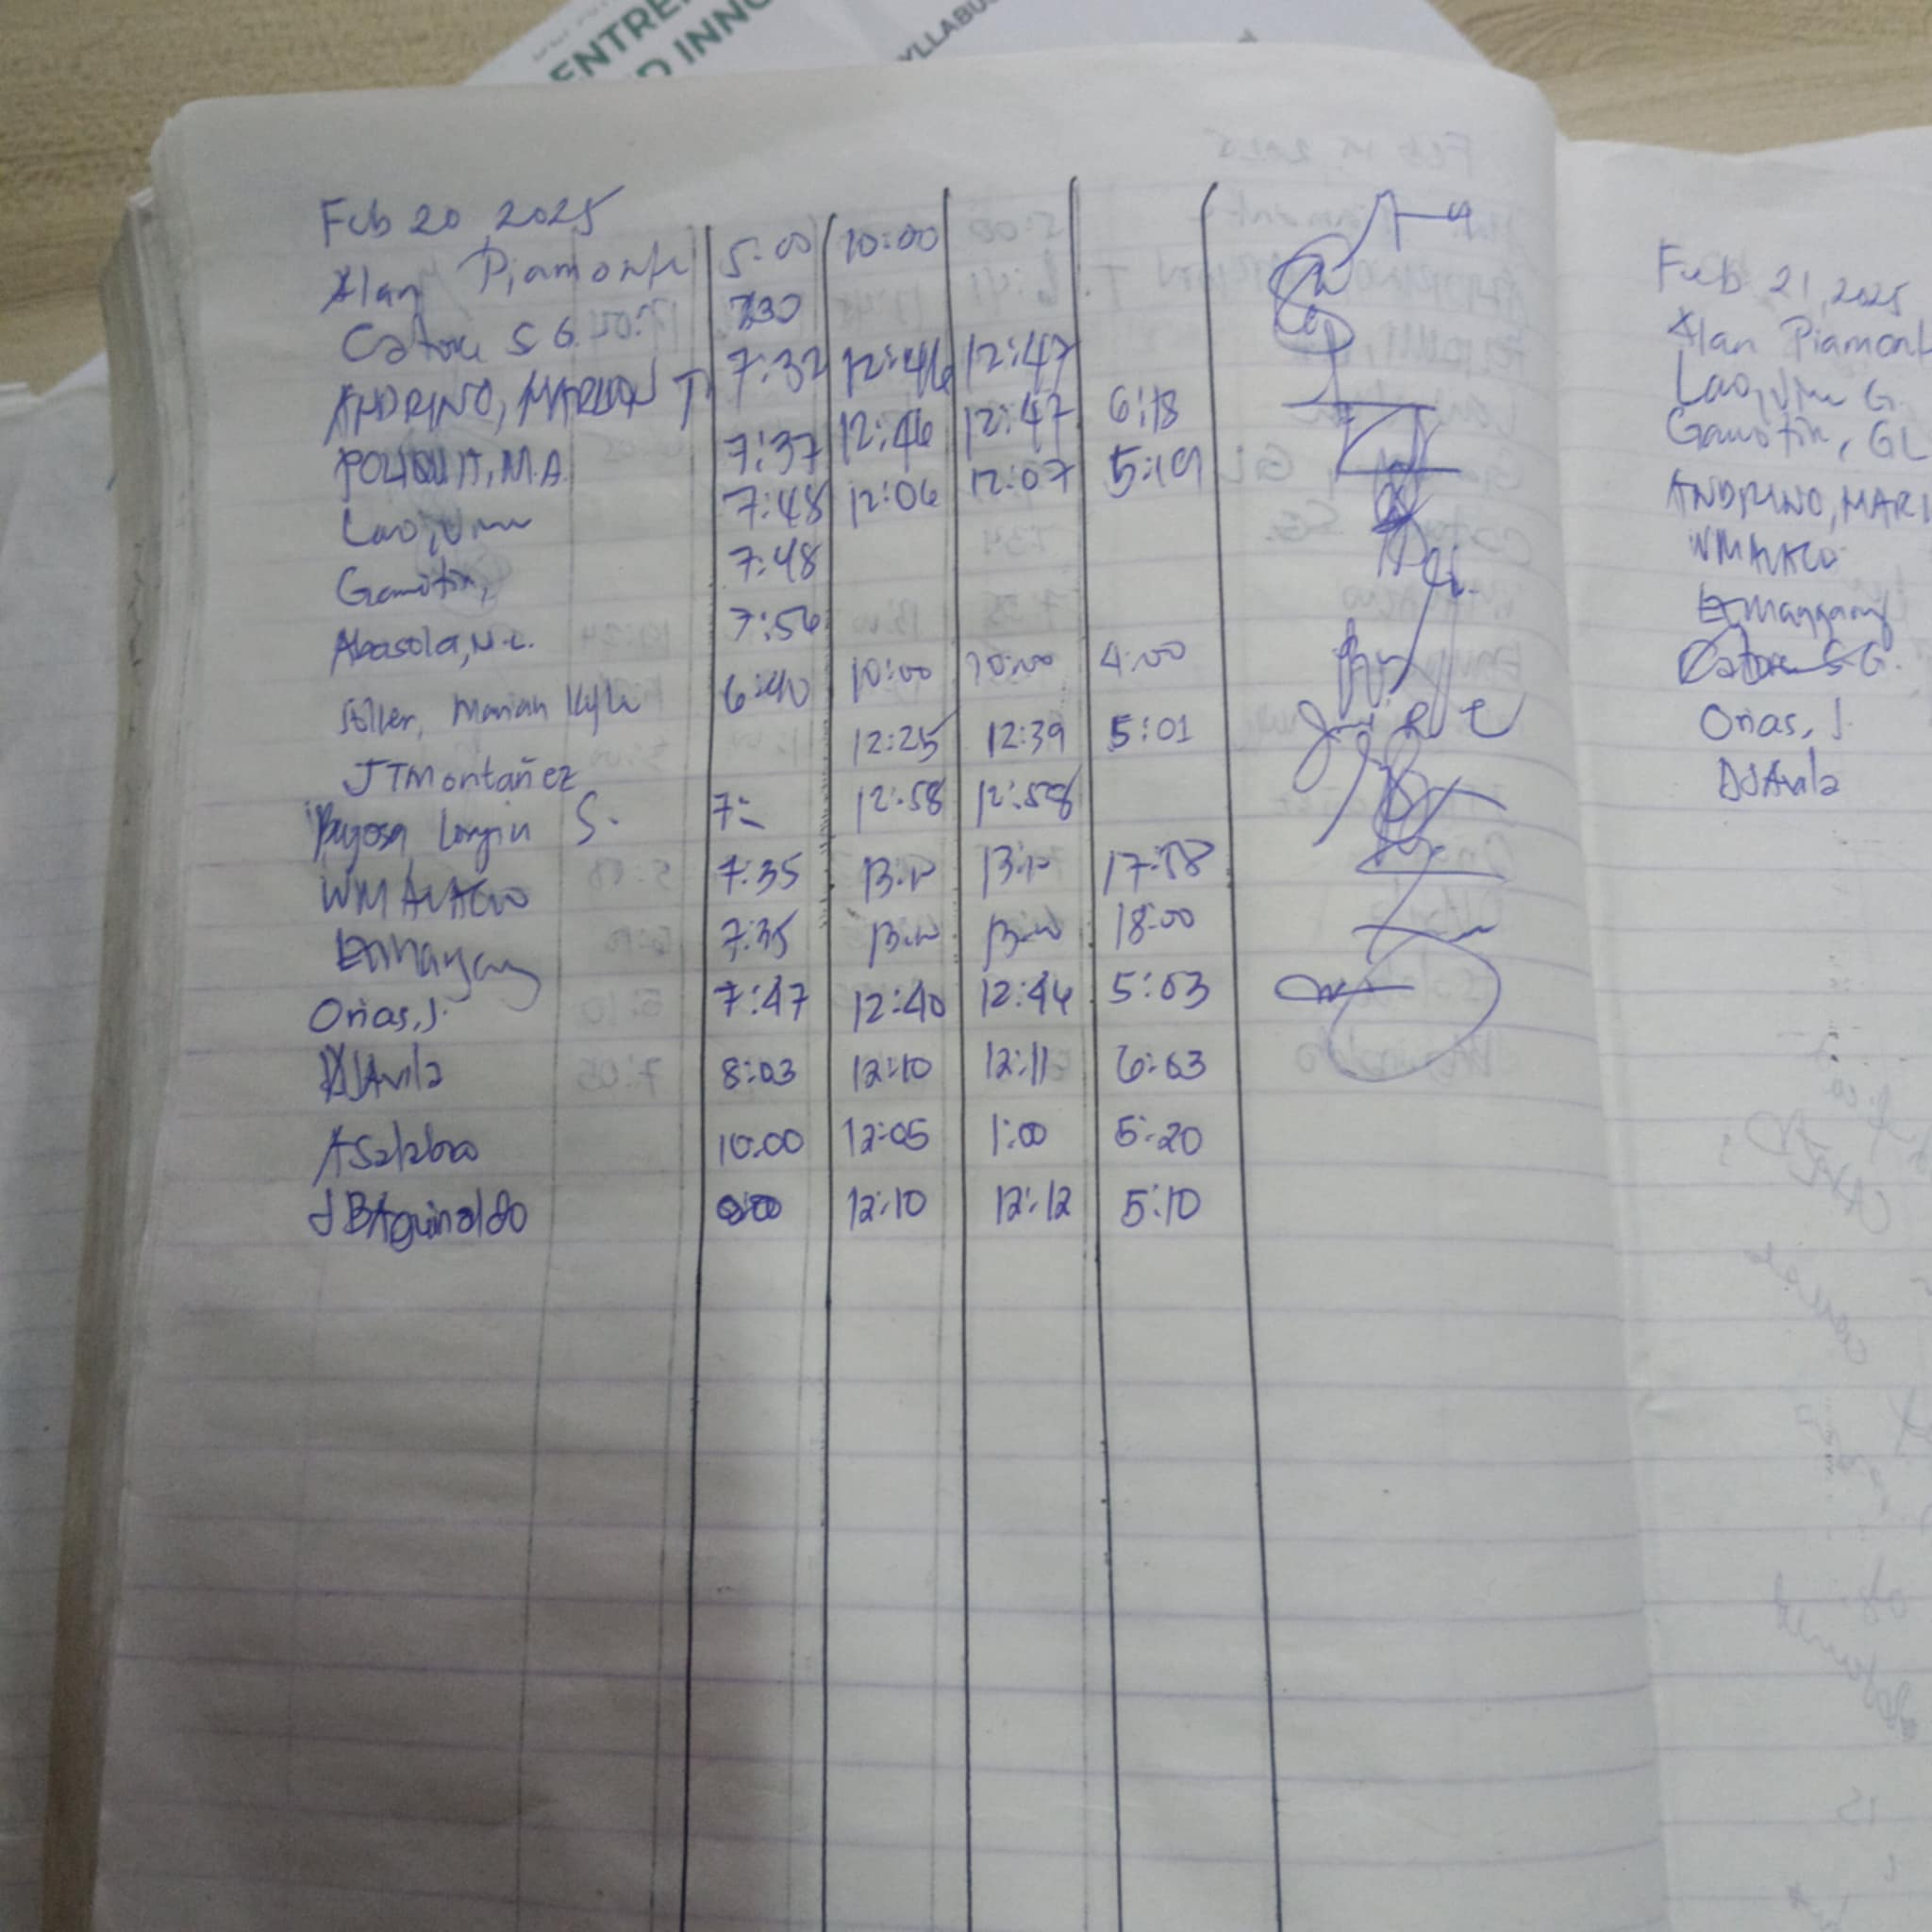 ENTRE
D INNO
YLLABUS
Feb 20, 2025
Alan Piamonte 5:00 10:00
Catore S G. 730
ANDRINO, MARLON T 7:32 12:46 12:47
POLIQUIT, M.A. 7:37 12:46 12:47 6:18
Lao, 7:48 12:06 12:07 5:19
Gamotin, 7:48
Abasola, N.L. 7:56
Soller, Mariah Kyle 6:40 10:00 10:00 4:00
JTMontañez 12:25 12:39 5:01
S. 7: 12:58 12:58
WMALACO 7:35 13:10 13:10 17:58
7:35 13:10 13:10 18:00
Orias, J. 7:47 12:40 12:44 5:03
DJAvila 8:03 12:10 12:11 6:03
ASalabao 10:00 12:05 1:00 5:20
JBAguinaldo 12:10 12:12 5:10
Feb 21, 2025
Alan Piamont
Lao, G.
Gamotin, GL
ANDRINO, MARL
WMALACO
Catore S G.
Orias, J.
DJAvila